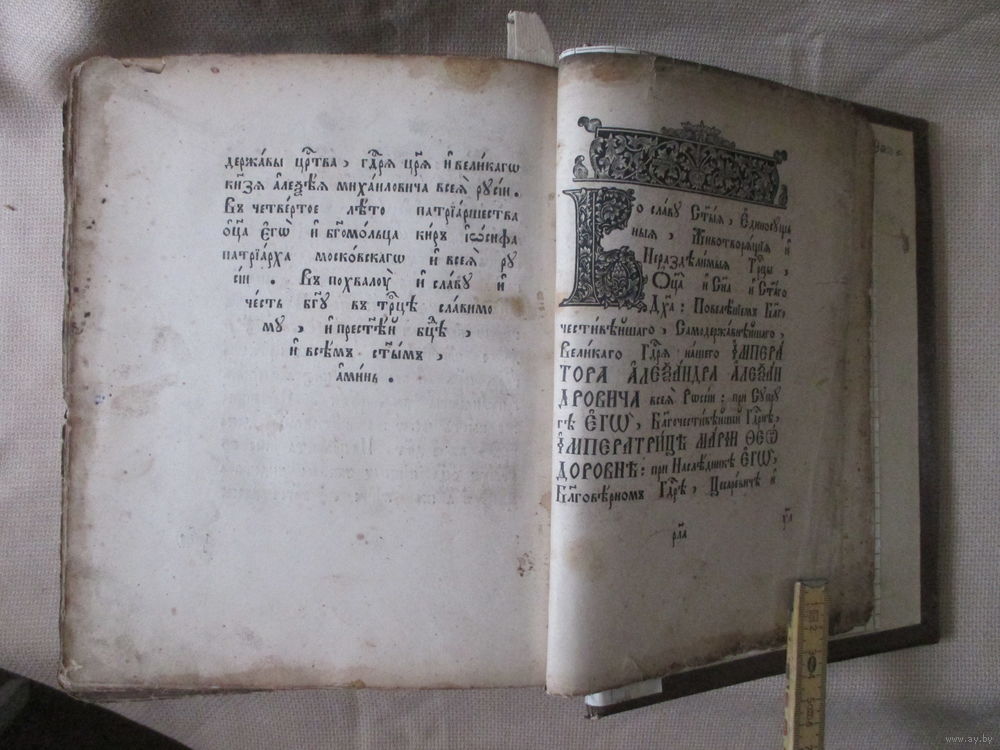 держа́вы црⷭ҇тва, гдⷭ҇рѧ цр҃ѧ и҆ вели́кагѡ
кнѧ́зѧ а҆леѯі́ѧ миха́иловича всеѧ̀ рꙋсі́и.
Въ четве́ртое лѣ́то патрїа́ршества
ѻ҆ц҃а є҆гѡ̀ и҆ бг҃омо́льца ки́ръ і҆ѡ́сифа
патрїа́рха моско́вскагѡ и҆ всеѧ̀ рꙋ
сі́и. Въ похвалоу̀ и҆ сла́вꙋ и҆
че́сть бг҃ꙋ въ трⷪ҇цѣ сла́вимо
мꙋ, и҆ престⷭ҇ѣ́й бц҃ѣ,
и҆ всѣ́мъ ст҃ы́мъ,
а҆ми́нь.
Во сла́вꙋ Ст҃ы́ѧ, Е҆диносꙋщ
ныѧ, Животворѧ́щїѧ и҆
Нераздѣли́мыѧ Трⷪ҇цы,
Ѻ҆ц҃а̀ и҆ Сн҃а и҆ Ст҃а́го
Дх҃а: Повелѣ́нїемъ Бл҃го
чести́вѣйшаго, Самодержа́внѣйшаго,
Вели́каго Гдⷭ҇рѧ на́шего И҆МПЕРА
ТОРА А҆ЛЕѮА́НДРА А҆ЛЕѮА́Н
ДРОВИЧА всеѧ̀ Рѡссі́и: при Сꙋпрꙋ
гѣ Е҆ГѠ̀, Бл҃гочести́вѣйшей Гдⷭ҇рнѣ,
И҆МПЕРАТРИ́ЦѢ МАРІ́И ѲЕѠ
ДОРОВНѢ: при Наслѣ́дникѣ Е҆ГѠ̀,
Бл҃говѣ́рномъ Гдⷭ҇рѣ, Цесаре́вичѣ и҆
рл҃а
www.ay.by